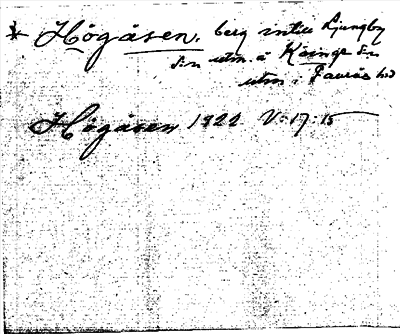 * Högåsen, berg intill Ljungby
s:n utm. å Köinge s:n
utm i Faurås hd
Högåsen 1922 V:17:15